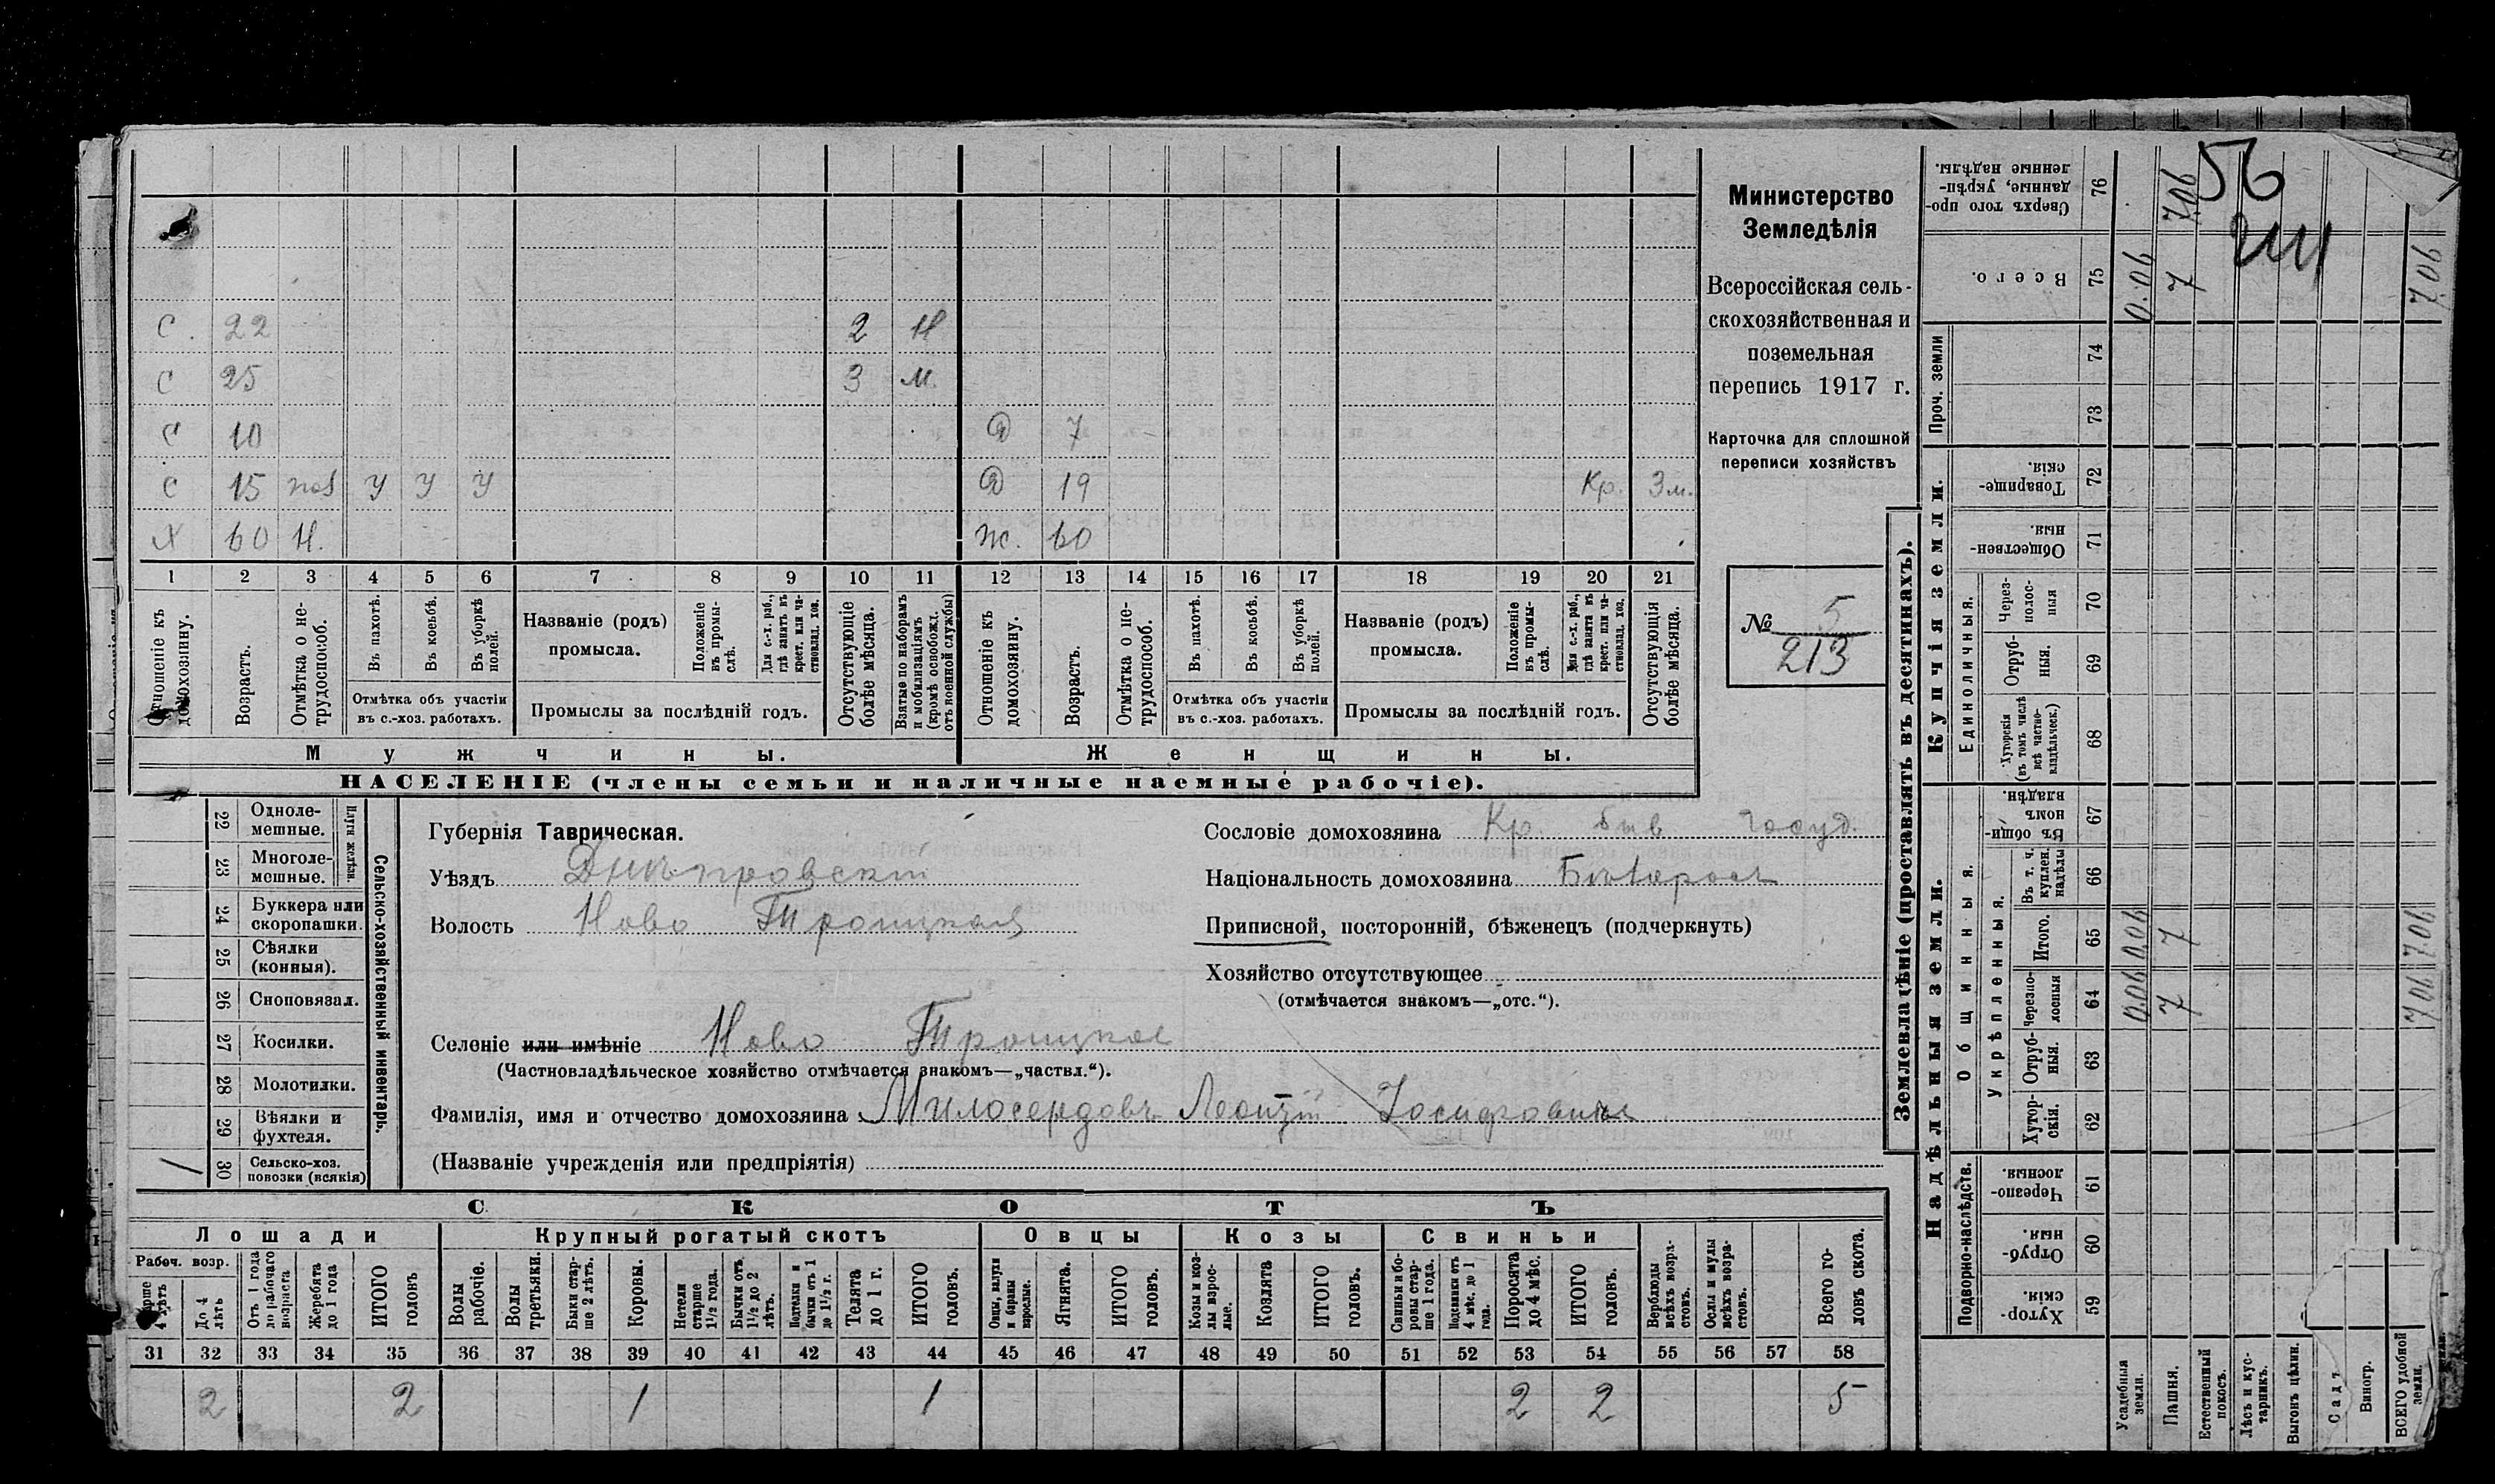 С. 22 2 Н
С 25 3 м.
С 10 Д 7
С 15 пол У У У Д 19 Кр. 3 м.
Х 60 Н. Ж. 60
1 2 3 4 5 6 7 8 9 10 11 12 13 14 15 16 17 18 19 20 21
Отношеніе къ домохозяину.
Возрастъ.
Отмѣтка о не-
трудоспособ.
Въ пахотѣ.
Въ косьбѣ.
Въ уборкѣ
полей.
Отмѣтка объ участіи
въ с.-хоз. работахъ.
Названіе (родъ)
промысла.
Положеніе
въ промы-
слѣ.
Для с.-х. раб.,
гдѣ занятъ въ
крест. или ча-
стновлад. хоз.
Промыслы за послѣдній годъ.
Отсутствующіе
болѣе мѣсяца.
Взятые по наборамъ
и мобилизаціямъ
(кромѣ освобожд.
отъ военной службы)
Отношеніе къ
домохозяину.
Возрастъ.
Отмѣтка о не-
трудоспособ.
Въ пахотѣ.
Въ косьбѣ.
Въ уборкѣ
полей.
Отмѣтка объ участіи
въ с.-хоз. работахъ.
Названіе (родъ)
промысла.
Положеніе
въ промы-
слѣ.
Для с.-х. раб.,
гдѣ занята въ
крест. или ча-
стновлад. хоз.
Промыслы за послѣдній годъ.
Отсутствующія
болѣе мѣсяца.
Мужчины.
Женщины.
НАСЕЛЕНІЕ (члены семьи и наличные наемные рабочіе).
Министерство
Земледѣлія
Всероссійская сель-
скохозяйственная и
поземельная
перепись 1917 г.
Карточка для сплошной
переписи хозяйствъ
№ 5
213
22 Одноле-
мешные.
23 Многоле-
мешные.
Плуги желѣзн.
24 Буккера или
скоропашки.
25 Сѣялки
(конныя).
26 Сноповязал.
27 Косилки.
28 Молотилки.
29 Вѣялки и
фухтеля.
/ 30 Сельско-хоз.
повозки (всякія)
Сельско-хозяйственный инвентарь.
Губернія Таврическая.
Уѣздъ Днѣпровскій
Волость Ново Троицкая
Селеніе или имѣніе Ново Троицкое
(Частновладѣльческое хозяйство отмѣчается знакомъ—„частвл.“).
Фамилія, имя и отчество домохозяина Милосердовъ Леонтій Іосифовичъ
(Названіе учрежденія или предпріятія)
Сословіе домохозяина Кр. быв госуд.
Національность домохозяина Бѣлоросъ
Приписной, посторонній, бѣженецъ (подчеркнуть)
Хозяйство отсутствующее
(отмѣчается знакомъ—„отс.“).
СКОТЪ
Лошади
Крупный рогатый скотъ
Овцы
Козы
Свиньи
Рабоч. возр.
Старше
4 лѣтъ
До 4
лѣтъ
Отъ 1 года
до рабочаго
возраста
Жеребята
до 1 года
ИТОГО
головъ
Волы
рабочіе.
Волы
третьяки.
Быки стар-
ше 2 лѣтъ.
Коровы.
Нетели
старше
1½ года.
Бычки отъ
1½ до 2
лѣтъ.
Подтелки и
бычки отъ 1
до 1½ г.
Телята
до 1 г.
ИТОГО
головъ.
Овцы, валухи
и бараны
взрослые.
Ягнята.
ИТОГО
головъ.
Козы и коз-
лы взрос-
лые.
Козлята
ИТОГО
головъ.
Свиньи и бо-
ровы стар-
ше 1 года.
Подсвинки отъ
4 мѣс. до 1
года.
Поросята
до 4 мѣс.
ИТОГО
головъ.
Верблюды
всѣхъ возра-
стовъ.
Ослы и мулы
всѣхъ возра-
стовъ.
Всего го-
ловъ скота.
31 32 33 34 35 36 37 38 39 40 41 42 43 44 45 46 47 48 49 50 51 52 53 54 55 56 57 58
2 2 1 1 2 2 5
Землевладѣніе (проставлять въ десятинахъ).
Купчія земли.
Надѣльныя земли.
Проч. земли
Единоличныя.
Общинныя.
Укрѣпленныя.
Подворно-наслѣдств.
Сверхъ того про-
данные, укрѣп-
ленные надѣлы.
76 7.06
Всего.
75 0.06 7 7.06
74
73
Товарище-
скія.
72
Обществен-
ныя.
71
Через-
полос-
ныя
70
Отруб-
ныя.
69
Хуторскія
(въ томъ числѣ
всѣ частно-
владѣльческ.)
68
Въ общин-
номъ
владѣн.
67
Въ т. ч.
куплен.
надѣлы
66
Итого.
65 0.06 7 7.06
Черезпо-
лосныя
64 0.06 7 7.06
Отруб-
ныя.
63
Хутор-
скія.
62
Черезпо-
лосныя.
61
Отруб-
ныя.
60
Хутор-
скія.
59
Усадебныя
земли.
Пашня.
Естественный
покосъ.
Лѣсъ и кус-
тарникъ.
Выгонъ цѣлин.
Садъ
Виногр.
ВСЕГО удобной
земли.
56